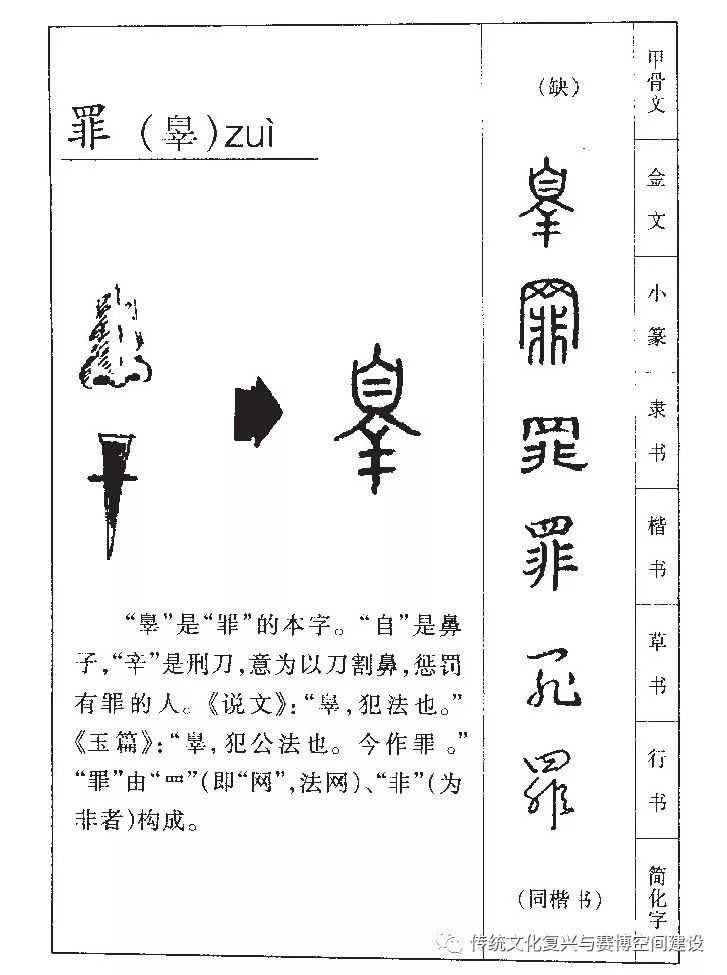 罪（辠）zuì
“辠”是“罪”的本字。“自”是鼻
子，“辛”是刑刀，意为以刀割鼻，惩罚
有罪的人。《说文》：“辠，犯法也。”
《玉篇》：“辠，犯公法也。今作罪。”
“罪”由“罒”（即“网”，法网）、“非”（为
非者）构成。
（缺）
辠
罪
罪
罪
罪
罪
（同楷书）
甲骨文
金文
小篆
隶书
楷书
草书
行书
简化字
传统文化复兴与赛博空间建设